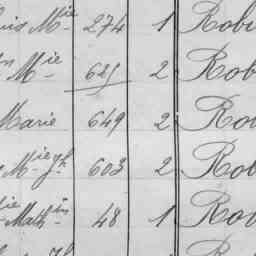 uis M^ie 274 1 Robi
n M^ie 625 2 Rob
Marie 649 2 Rob
M^ie J^h 603 2 Rob
ie Math^in 48 1 Rob